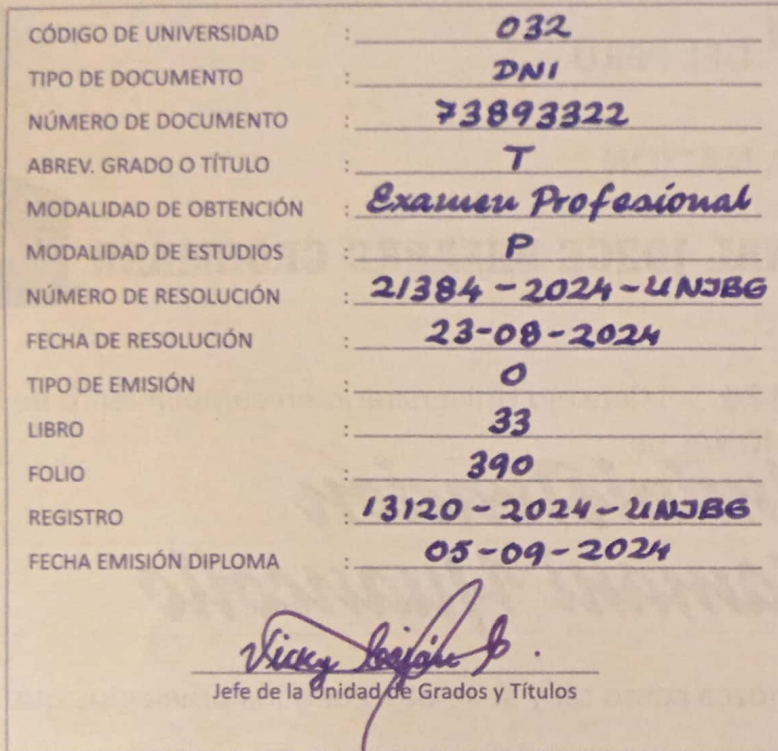 CÓDIGO DE UNIVERSIDAD : 032
TIPO DE DOCUMENTO : DNI
NÚMERO DE DOCUMENTO : 73893322
ABREV. GRADO O TÍTULO : T
MODALIDAD DE OBTENCIÓN : Examen Profesional
MODALIDAD DE ESTUDIOS : P
NÚMERO DE RESOLUCIÓN : 21384-2024-UNJBG
FECHA DE RESOLUCIÓN : 23-08-2024
TIPO DE EMISIÓN : O
LIBRO : 33
FOLIO : 390
REGISTRO : 13120-2024-UNJBG
FECHA EMISIÓN DIPLOMA : 05-09-2024
Vicky
Jefe de la Unidad de Grados y Títulos